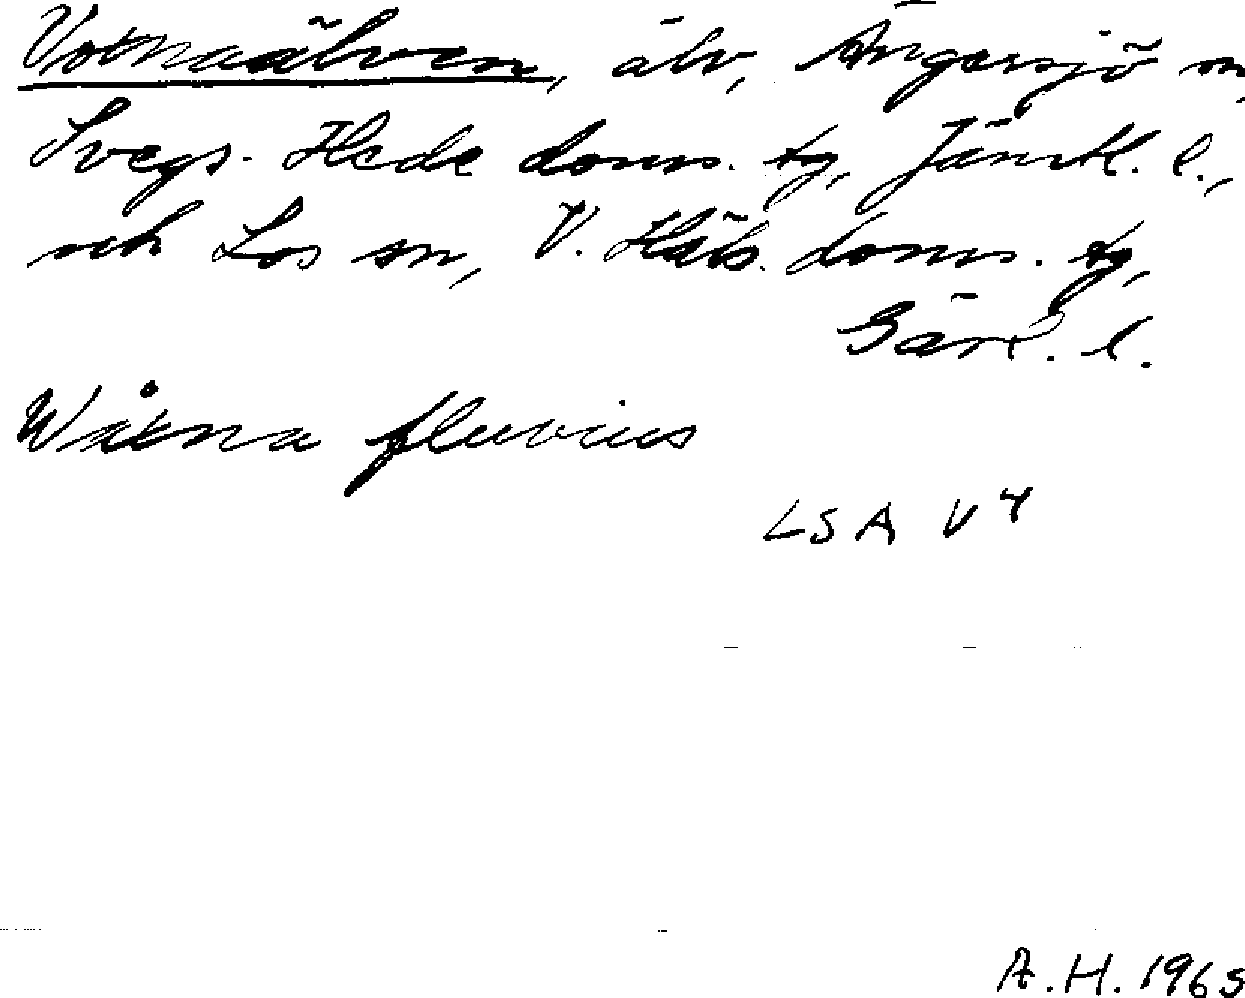 Votnaälven, älv, Ängersjö sn,
Svegs-Hede doms. tg, Jämtl. l.,
och Los sn, V. Häls. doms. tg,
Gävl. l.
Wåtna fluvius
LSA V4
A.H. 1965